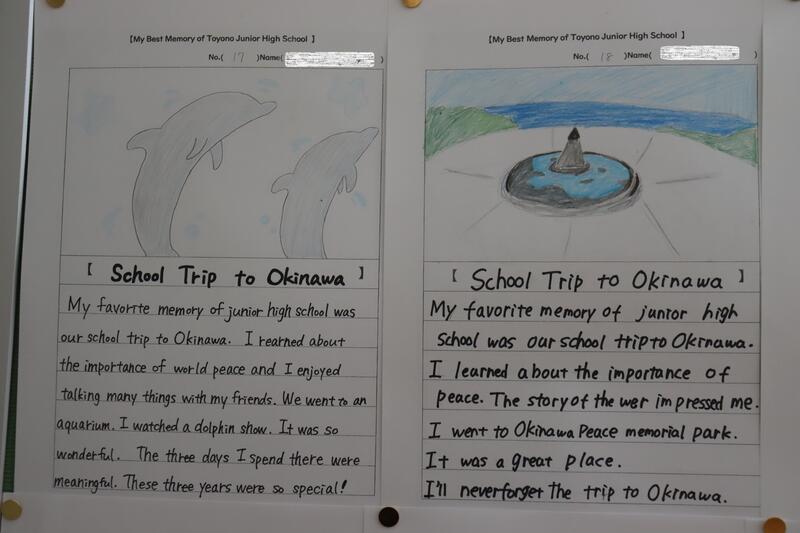 【My Best Memory of Toyono Junior High School 】
No.( 17 )Name( )
【 School Trip to Okinawa 】
My favorite memory of junior high school was
our school trip to Okinawa. I rearned about
the importance of world peace and I enjoyed
talking many things with my friends. We went to an
aquarium. I watched a dolphin show. It was so
wonderful. The three days I spend there were
meaningful. These three years were so special!
【My Best Memory of Toyono Junior High School 】
No.( 18 )Name( )
【 School Trip to Okinawa 】
My favorite memory of junior high
school was our school trip to Okinawa.
I learned about the importance of
peace. The story of the wer impressed me.
I went to Okinawa Peace memorial park.
It was a great place.
I'll never forget the trip to Okinawa.